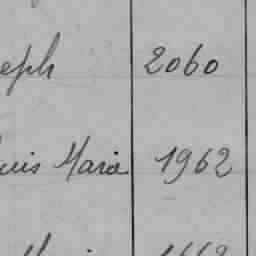 eph 2060
uis Maria 1962